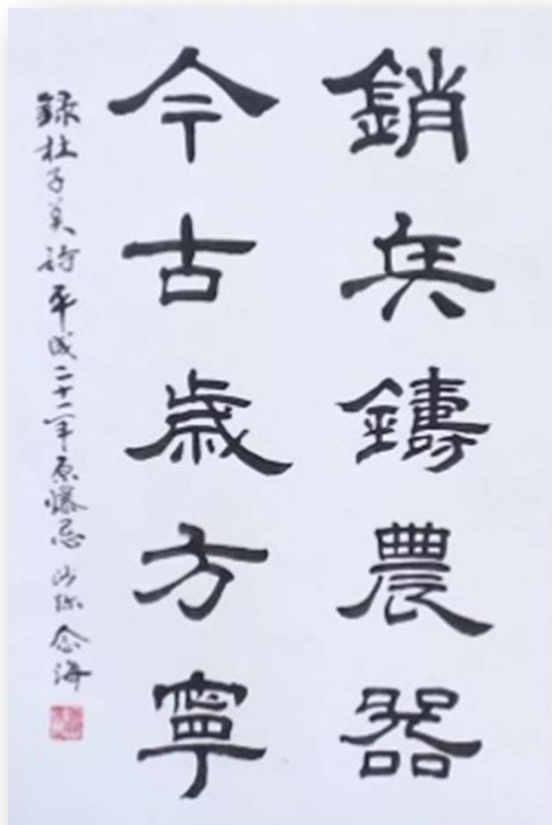 銷兵鑄農器
今古歳方寧
録杜子美詩 平成二十一年原爆忌 沙弥 念海